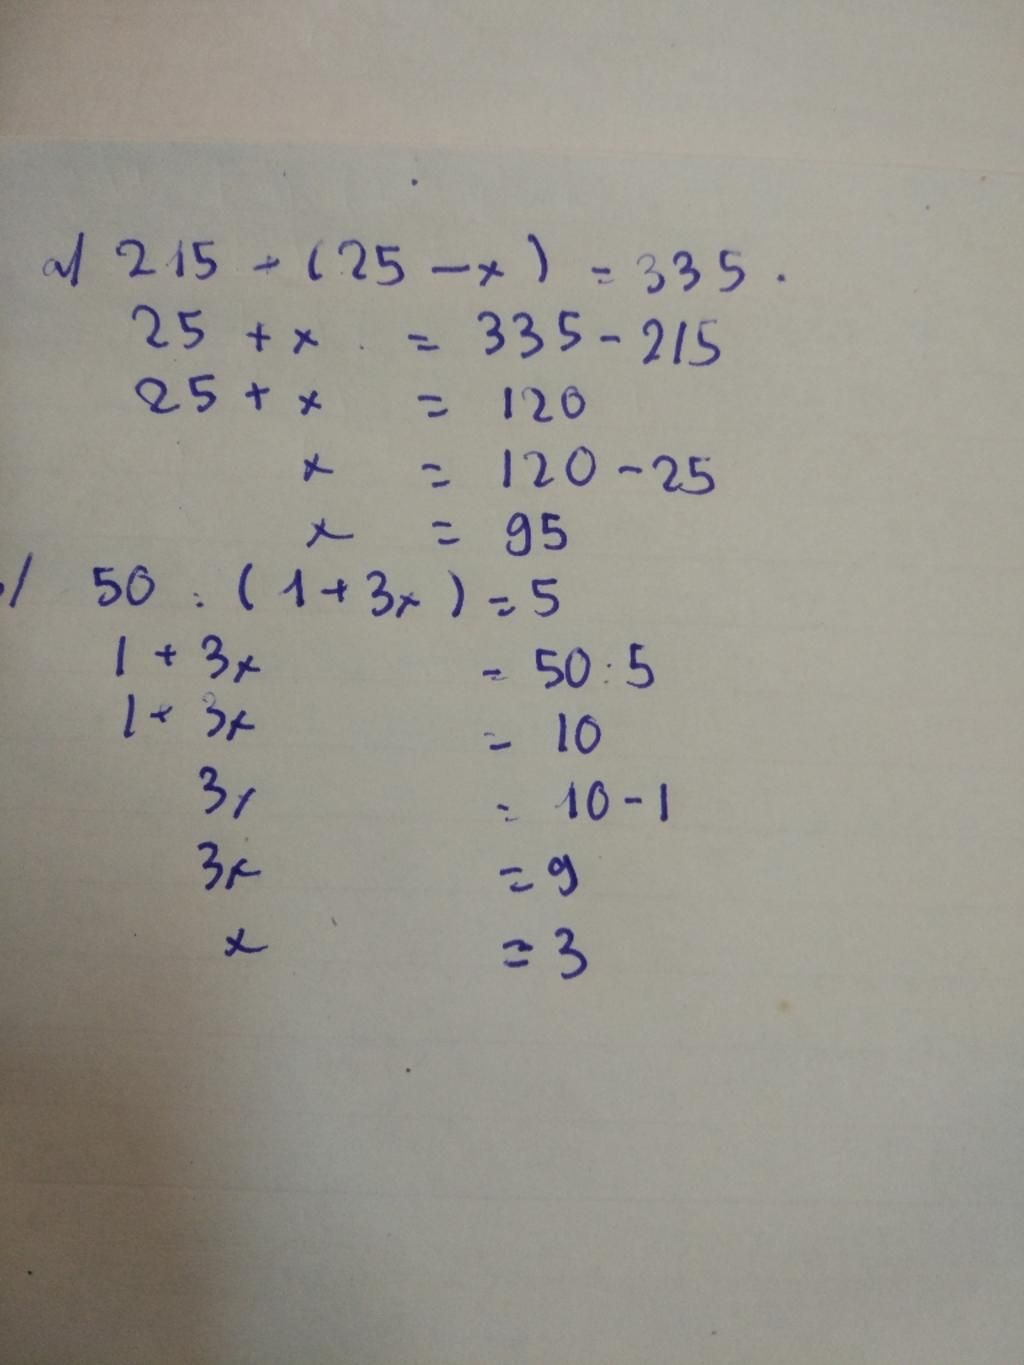 a/ 215 - (25 - x) = 335.
25 + x = 335 - 215
25 + x = 120
x = 120 - 25
x = 95
/ 50 : (1 + 3x) = 5
1 + 3x = 50 : 5
1 + 3x = 10
3x = 10 - 1
3x = 9
x = 3